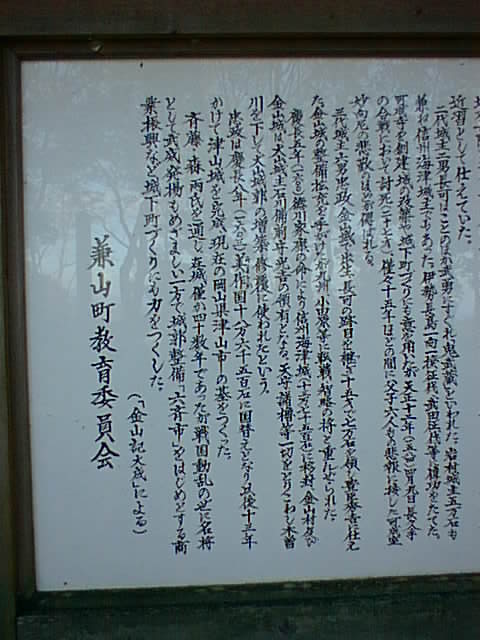 近習として仕えていた。
二代城主二男長可はことのほか武勇にすぐれ鬼武蔵といわれた。岩村城主五万石も
兼ね信州海津城主でもあった。伊勢長島一向一揆征伐、武田氏伐等に偉功をたてた。
可成寺を創建、城の改築、城下町づくりにも意を用いたが天正十二年(一五八四)四月九日長久手
の合戦において討死二十七才、僅か十五年ほどの間に父子六人もの悲報に接した可成室
妙向尼の悲歎のほどが偲ばれる。
三代城主六男忠政、金山城で出生、長可の跡目を継ぎ十五才で七万石を領し豊臣秀吉に仕え
た。金山城の整備拡充を
慶長五年(一六〇〇)徳川家康の命により信州海津城(十三万七千五百石)に移封、金山村及び
金山城は犬山城主石川備前守光吉の領有となる。天守、諸櫓等一切をとりこわし木曽
川を下して犬山城郭の増築、修復に使われたという。
忠政は慶長八年(一六〇三)美作国十八万六千五百石に国替えとなり以後十三年
かけて津山城を完成、現在の岡山県津山市の基をつくった。
斉藤、森両氏を通じ在城、僅か四十数年であったが戦国動乱の世に名将
として武威発揚もめざましい一方で城郭整備、「六斉市」をはじめとする商
業振興など城下町づくりにも力をつくした。
(「金山記大成」による)
兼山町教育委員会